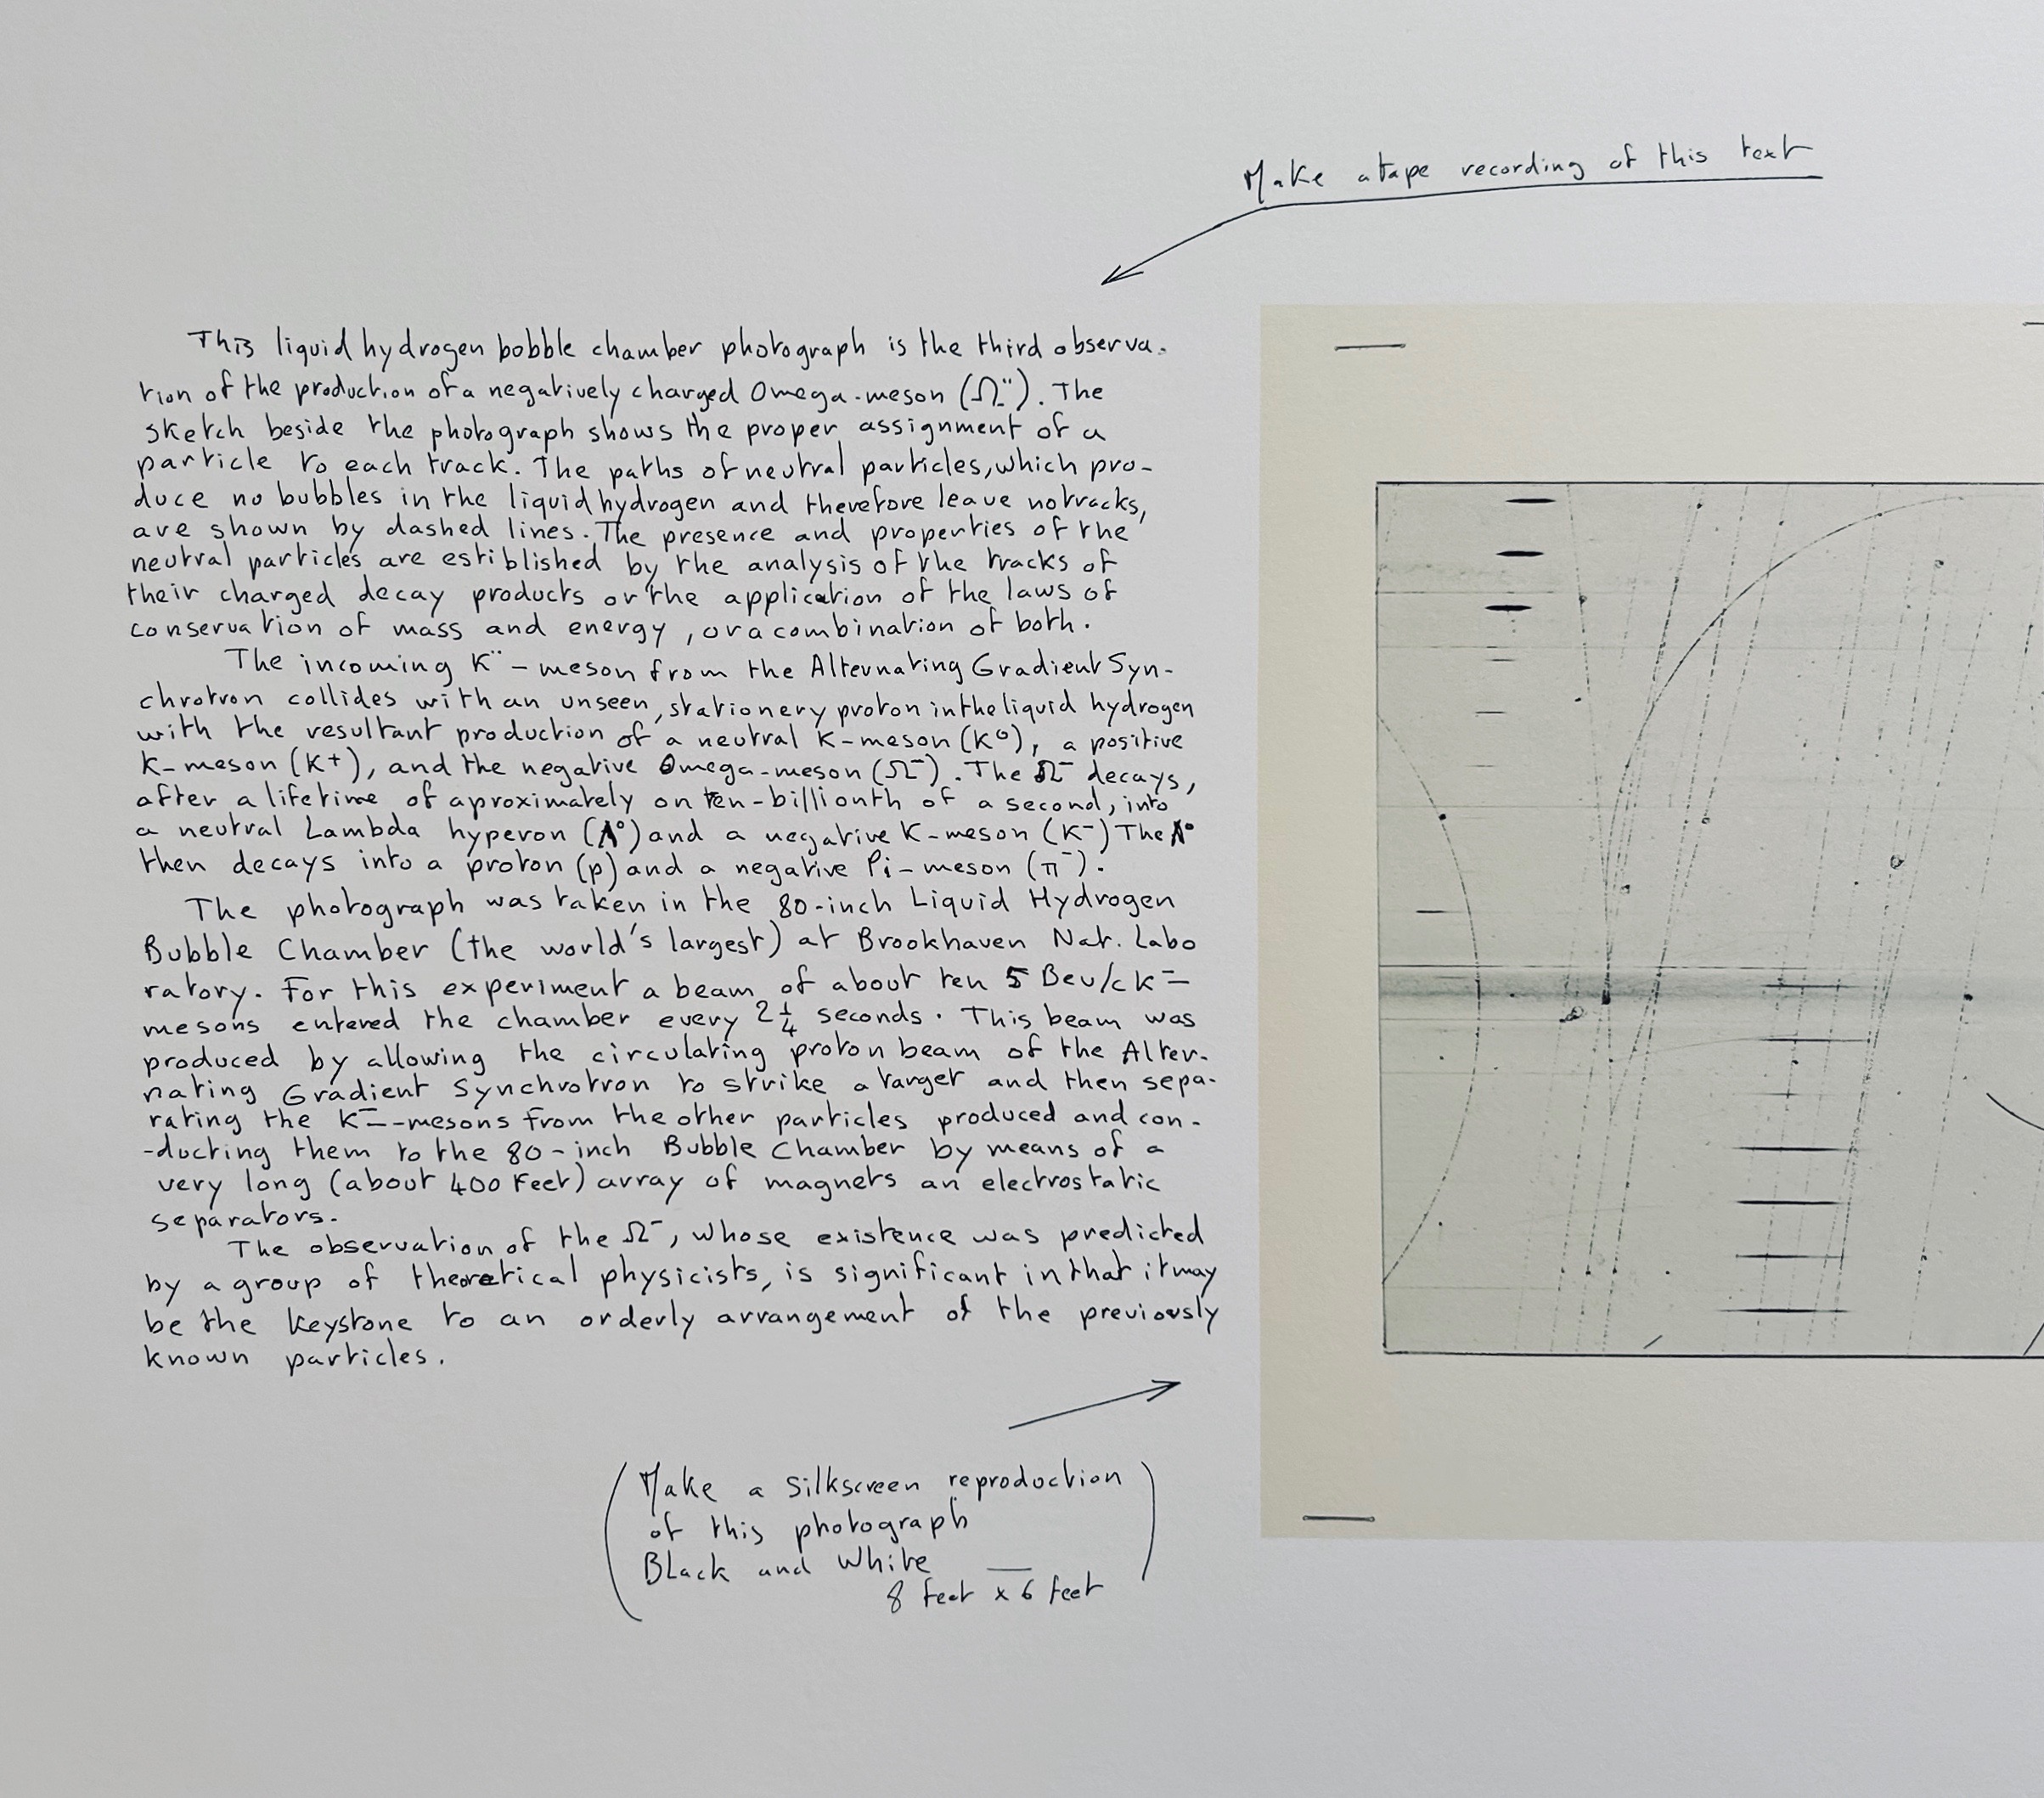 Make a tape recording of this text
This liquid hydrogen bobble chamber photograph is the third observa-
tion of the production of a negatively charged Omega-meson (Ω¨). The
sketch beside the photograph shows the proper assignment of a
particle to each track. The paths of neutral particles, which pro-
duce no bubbles in the liquid hydrogen and therefore leave no tracks,
are shown by dashed lines. The presence and properties of the
neutral particles are estiblished by the analysis of the tracks of
their charged decay products or the application of the laws of
conservation of mass and energy, or a combination of both.
The incoming K¨-meson from the Alternating Gradient Syn-
chrotron collides with an unseen, stationery proton in the liquid hydrogen
with the resultant production of a neutral K-meson (K⁰), a positive
K-meson (K+), and the negative Omega-meson (Ω⁻). The Ω⁻ decays,
after a lifetime of aproximately on ten-billionth of a second, into
a neutral Lambda hyperon (Λ°) and a negative K-meson (K⁻) The Λ°
then decays into a proton (p) and a negative Pi-meson (π⁻).
The photograph was taken in the 80-inch Liquid Hydrogen
Bubble Chamber (the world's largest) at Brookhaven Nat. Labo
ratory. For this experiment a beam of about ten 5 Bev/c K⁻-
mesons entered the chamber every 2 1/4 seconds. This beam was
produced by allowing the circulating proton beam of the Alter-
nating Gradient Synchrotron to strike a target and then sepa-
rating the K⁻-mesons from the other particles produced and con-
-ducting them to the 80-inch Bubble Chamber by means of a
very long (about 400 Feet) array of magnets an electrostatic
separators.
The observation of the Ω⁻, whose existence was predicted
by a group of theoretical physicists, is significant in that it may
be the keystone to an orderly arrangement of the previously
known particles.
(Make a silkscreen reproduction
of this photograph
Black and White —
8 feet x 6 feet)